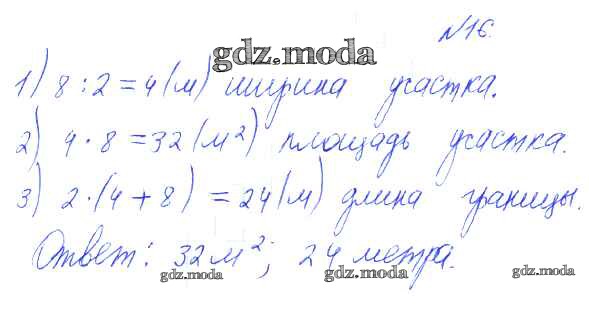 №16.
gdz.moda
1) 8 : 2 = 4 (м) ширина участка.
2) 4 · 8 = 32 (м²) площадь участка.
3) 2 · (4 + 8) = 24 (м) длина границы.
Ответ: 32 м²; 24 метра.
gdz.moda gdz.moda gdz.moda